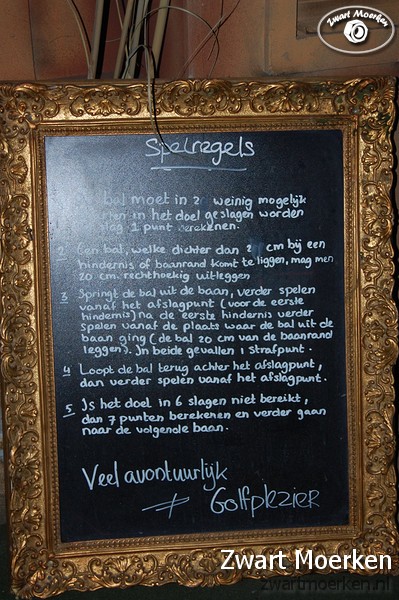 Zwart Moerken
Spelregels
bal moet in zo weinig mogelijk
in het doel geslagen worden
slag 1 punt berekenen.
2 Een bal, welke dichter dan 2 cm bij een
hindernis of baanrand komt te liggen, mag men
20 cm. rechthoekig uitleggen
3 Springt de bal uit de baan, verder spelen
vanaf het afslagpunt (voor de eerste
hindernis) na de eerste hindernis verder
spelen vanaf de plaats waar de bal uit de
baan ging (de bal 20 cm van de baanrand
leggen). In beide gevallen 1 Strafpunt.
4 Loopt de bal terug achter het afslagpunt,
dan verder spelen vanaf het afslagpunt.
5 Is het doel in 6 slagen niet bereikt,
dan 7 punten berekenen en verder gaan
naar de volgende baan.
Veel avontuurlijk
Golfplezier
Zwart Moerken
zwartmoerken.nl